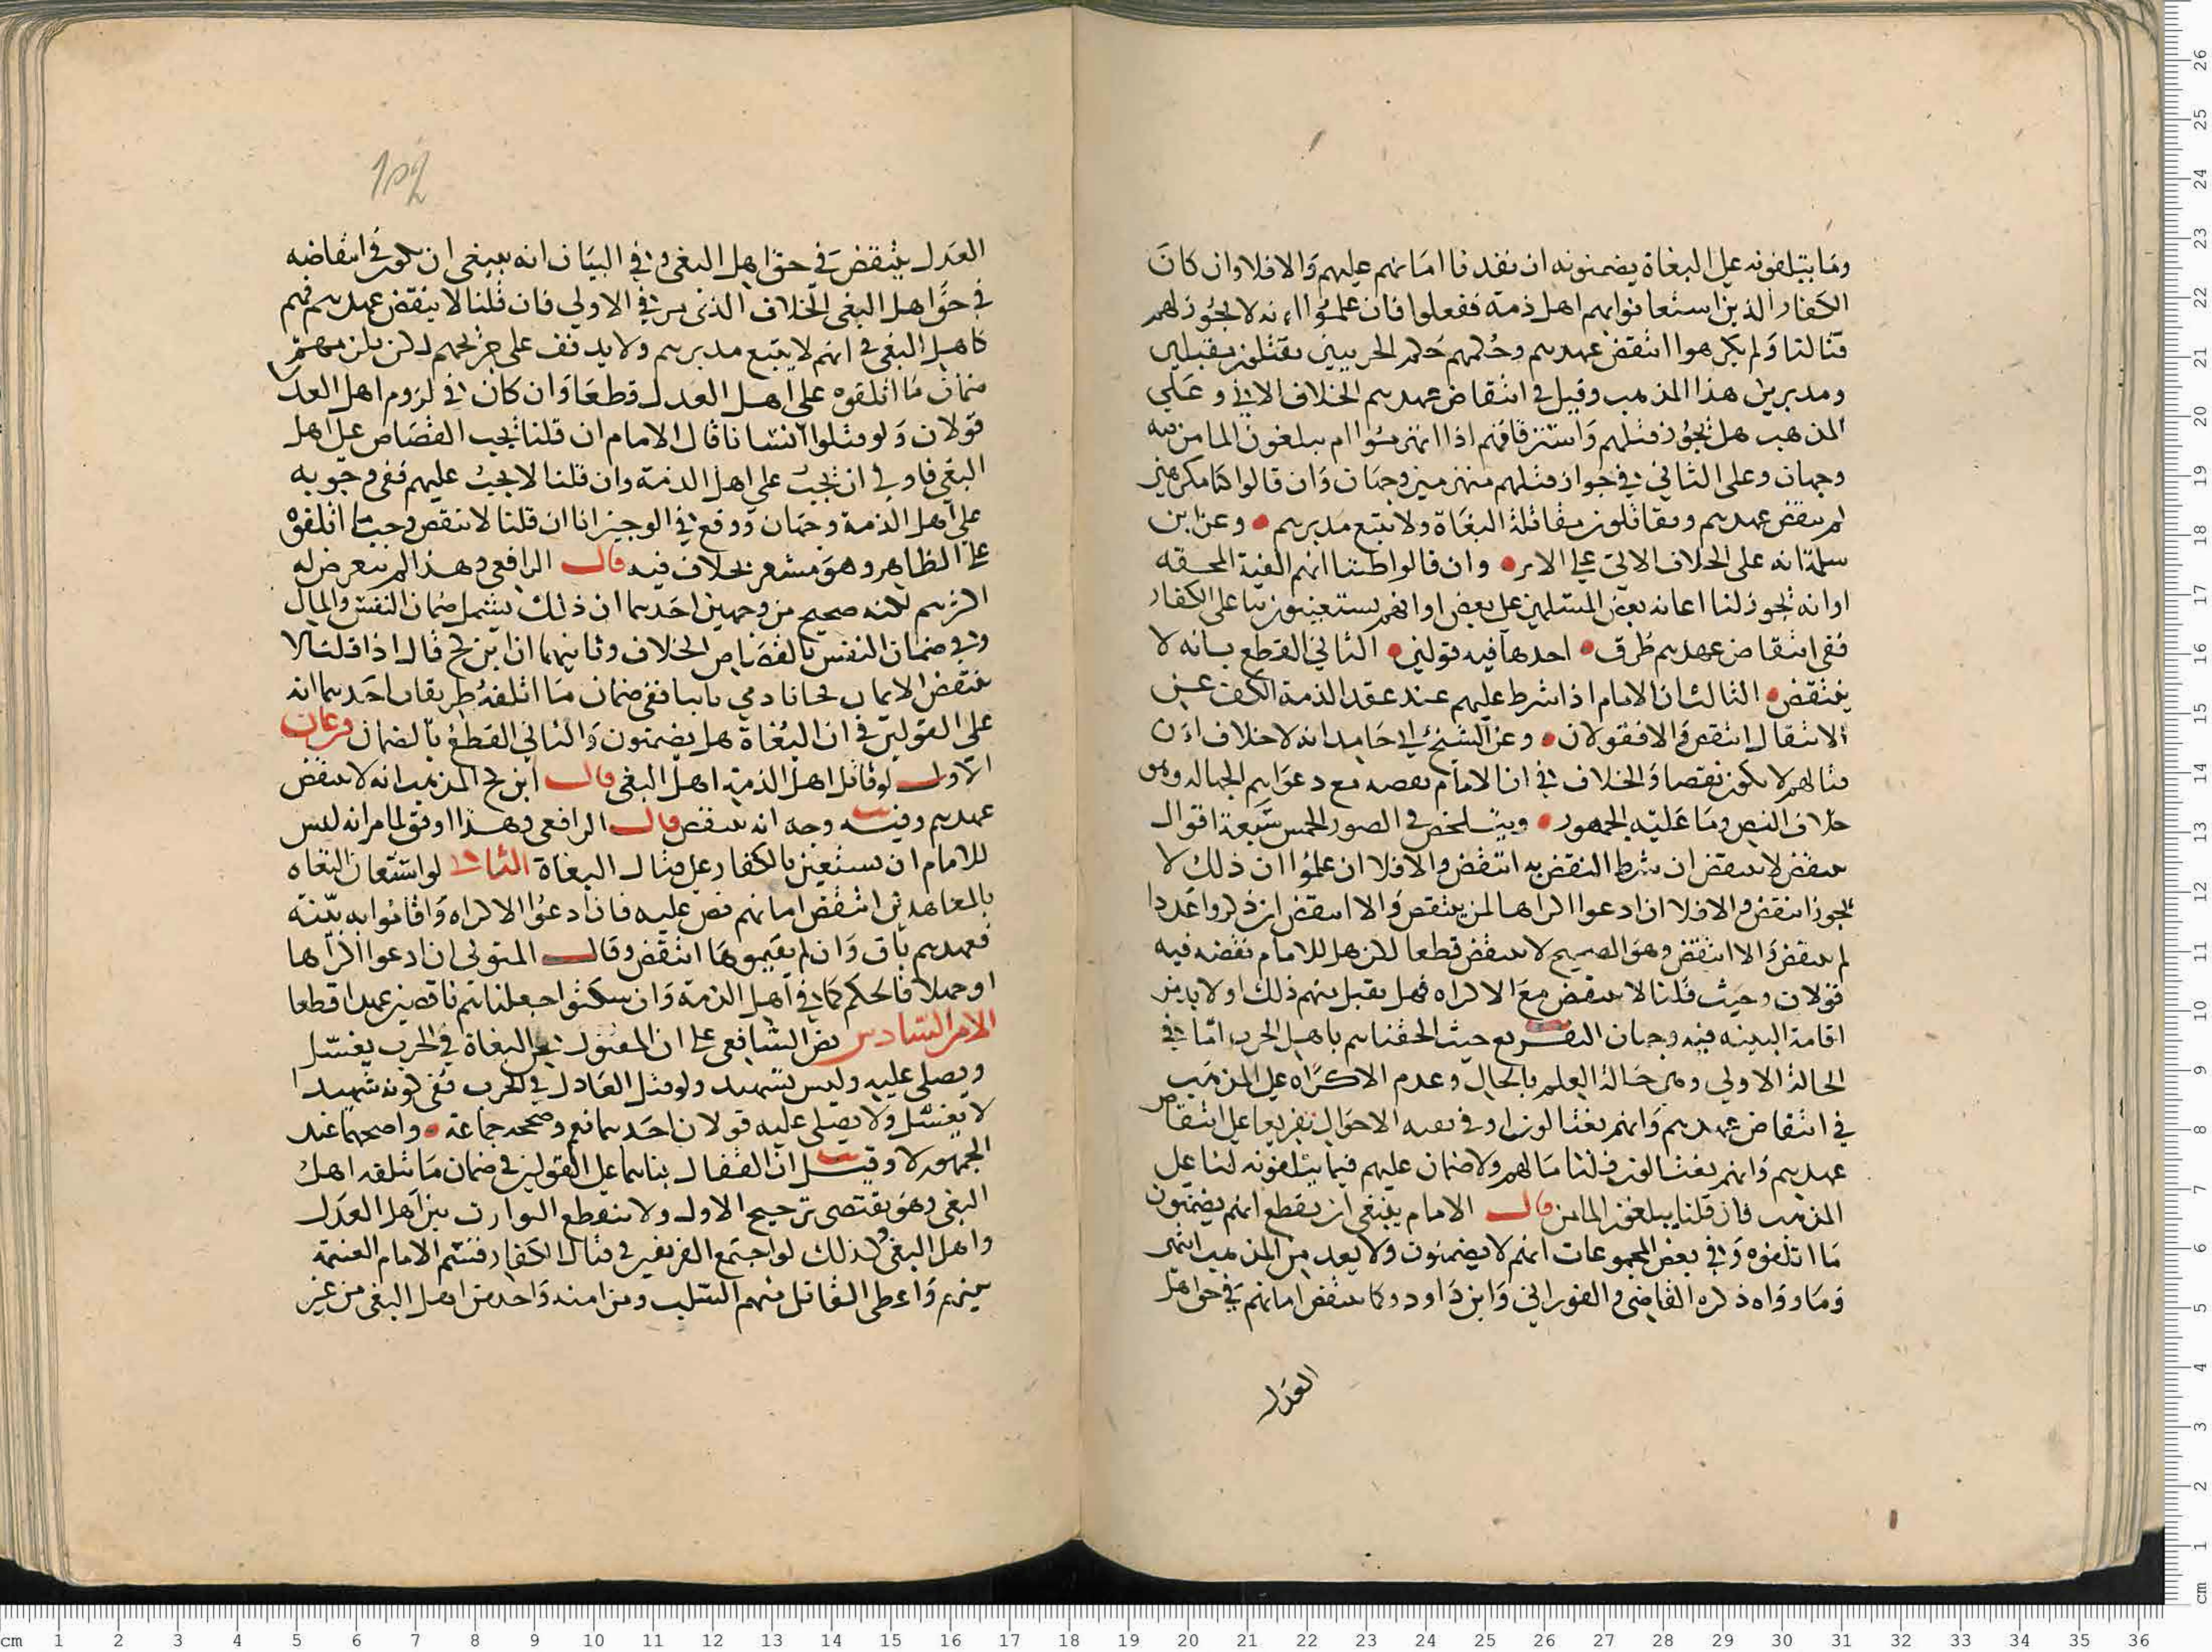 وما يتلفونه على البغاة يضمنونه ان نفذنا امانهم عليهم والا فلا وان كان
الكفار الذين استعانوا بهم اهل ذمة ففعلوا فان علموا انه لا يجوز لهم
قتالنا ولم يكرهوا انتقض عهدهم وحكمهم حكم الحربيين يقتلون مقبلين
ومدبرين هذا المذهب وقيل في انتقاض عهدهم الخلاف الاتي وعلى
المذهب هل يجوز قتلهم واسترقاقهم اذا انهزموا ام يبلغون المامن فيه
وجهان وعلى الثاني في جواز قتلهم منهزمين وجهان وان قالوا كنا مكرهين
لم ينتقض عهدهم ويقاتلون مقاتلة البغاة ولا يتبع مدبرهم وعن ابن
سلمة انه على الخلاف الاتي على الاثر وان قالوا ظننا انهم الفية المحقة
او انه يجوز لنا اعانة بعض المسلمين على بعض او انهم يستعينون بنا على الكفار
ففي انتقاض عهدهم طرق احدها فيه قولين الثاني القطع بانه لا
ينتقض الثالث ان الامام اذا شرط عليهم عند عقد الذمة الكف عن
القتال انتقض والا فقولان وعن الشيخ ابي حامد انه لا خلاف ان
قتالهم لا يكون نقضا والخلاف في ان الامام نقضه مع دعواهم الجهالة وهو
خلاف النص وما عليه الجمهور ويتلخص في الصور الخمس سبعة اقوال
ينتقض لا ينتقض ان شرط النقض به انتقض والا فلا ان علموا ان ذلك لا
يجوز انتقض والا فلا ان ادعوا اكراها لم ينتقض والا انتقض ان ذكروا عذرا
لم ينتقض والا انتقض وهو الصحيح لا ينتقض قطعا لكن هل للامام نقضه فيه
قولان وحيث قلنا لا ينتقض مع الاكراه فهل يقبل منهم ذلك او لا بد من
اقامة البينه فيه وجهان التفريع حيث الحقناهم باهل الحرب اما في
الحالة الاولى وهي حالة العلم بالحال وعدم الاكراه على المذهب
في انتقاض عهدهم وانهم يغتالون او في بقية الاحوال تفريعا على انتقاض
عهدهم وانهم يغتالون فلنا مالهم ولا ضمان عليهم فيما يتلفونه لنا على
المذهب فان قلنا يبلغون المامن قال الامام ينبغي ان يقطع انهم يضمنون
ما اتلفوه وفي بعض المجموعات انهم لا يضمنون ولا يعد من المذهب انتهى
وما رواه ذكره القاضي والفوراني وابن داود وكما ينتقض امانهم في حق اهل
العدل
العدل ينتقض في حق اهل البغي وفي البيان انه ينبغي ان يكون في انتقاضه
في حق اهل البغي الخلاف الذي مر في الاولى فان قلنا لا ينتقض عهدهم فهم
كاهل البغي في انهم لا يتبع مدبرهم ولا يدفف على جريحهم لكن يلزمهم
ضمان ما اتلفوه على اهل العدل قطعا وان كان في لزوم اهل العدل
قولان ولو قتلوا انسانا قال الامام ان قلنا يجب القصاص على اهل
البغي فاولى ان يجب على اهل الذمة وان قلنا لا يجب عليهم ففي وجوبه
على اهل الذمة وجهان ووقع في الوجيز انا ان قلنا لا ينتقض وجب ما اتلفوه
على الظاهر وهو مشعر بخلاف فيه قال الرافعي وهذا لم يتعرض له
اكثرهم لكنه صحيح من وجهين احدهما ان ذلك يشمل ضمان النفس والمال
وفي ضمان النفس بالقصاص الخلاف وثانيهما ان ابن كج قال اذا قلنا لا
ينتقض الامان
على القولين في ان البغاة هل يضمنون والثاني القطع بالضمان فرعان
الاول لو قاتل اهل الذمة اهل البغي قال ابن كج المذهب انه لا ينتقض
عهدهم وفيه وجه انه ينتقض قال الرافعي وهذا اوفق لما مر انه ليس
للامام ان يستعين بالكفار على قتال البغاة الثاني لو استعان البغاه
بالمعاهدين انتقض امانهم نص عليه فان ادعوا الاكراه واقاموا به بينة
فعهدهم باق وان لم يقيموها انتقض وقال المتولي ان ادعوا اكراها
او جهلا فالحكم كما في اهل الذمة وان سكتوا جعلناهم ناقضين عهدا قطعا
الامر السادس نص الشافعي على ان المقتول من البغاة في الحرب يغسل
ويصلى عليه وليس بشهيد ولو قتل العادل في الحرب ففي كونه شهيدا
لا يغسل ولا يصلى عليه قولان احدهما نعم وصححه جماعة واصحهما عند
الجمهور لا وقيل ان القفال بناهما على القولين في ضمان ما تتلفه اهل
البغي وهو يقتضي ترجيح الاول ولا ينقطع التوارث بين اهل العدل
واهل البغي وكذلك لو اجتمع الفريقين في قتال الكفار قسم الامام الغنيمة
بينهم واعطى القاتل منهم السلب ومن امنه واحد من اهل البغي من غير